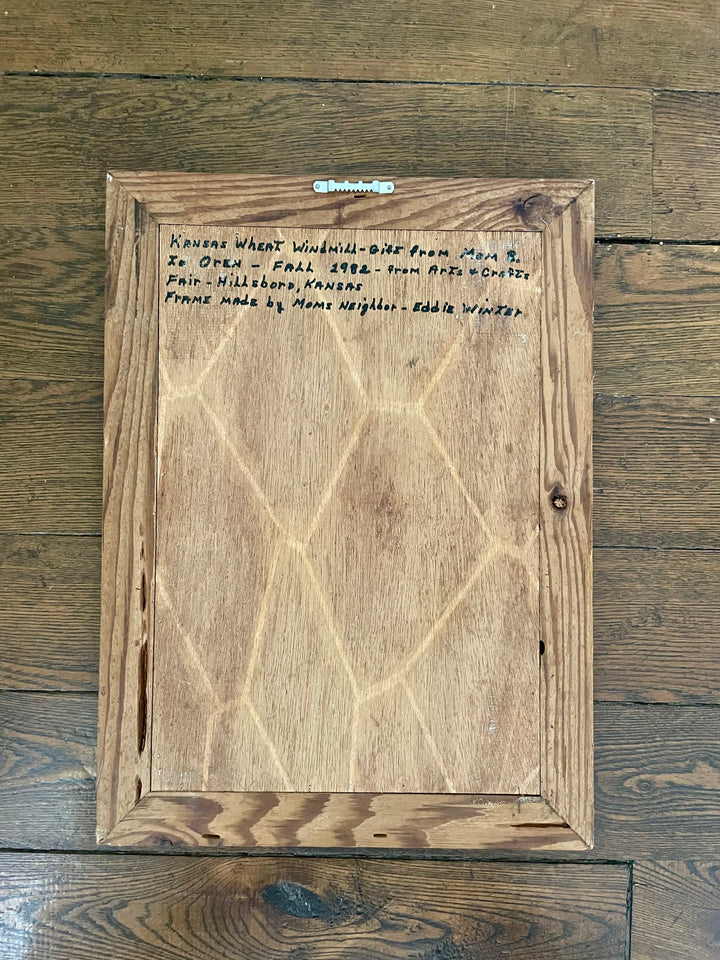 Kansas Wheat Windmill - Gift from Mom B.
to Oren - Fall 1982 - from Arts & Crafts
Fair - Hillsboro, Kansas
Frame made by Moms Neighbor - Eddie Winter